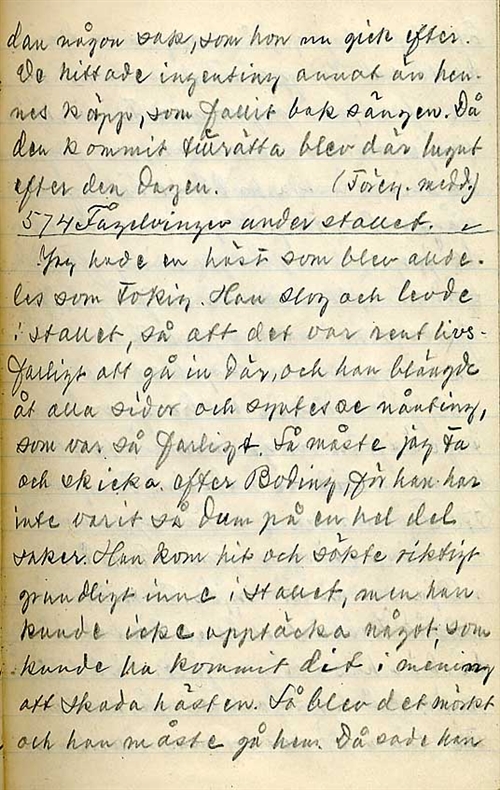 dan någon sak, som hon nu gick efter.
De hittade ingenting annat än hen-
nes käpp, som fallit bak sängen. Då
den kommit tillrätta blev där lugnt
efter den dagen. (Föreg. medd.)
574 Fågelvingen under stallet.
Jag hade en häst som blev allde-
les som tokig. Han slog och levde
i stallet, så att det var rent livs-
farligt att gå in där, och han blängde
åt alla sidor och syntes se nånting,
som var så farligt. Så måste jag ta
och skicka efter Boding, för han har
inte varit så dum på en hel del
saker. Han kom hit och sökte riktigt
grundligt inne i stallet, men han
kunde icke upptäcka något, som
kunde ha kommit dit i mening
att skada hästen. Så blev det mörkt
och han måste gå hem. Då sade han